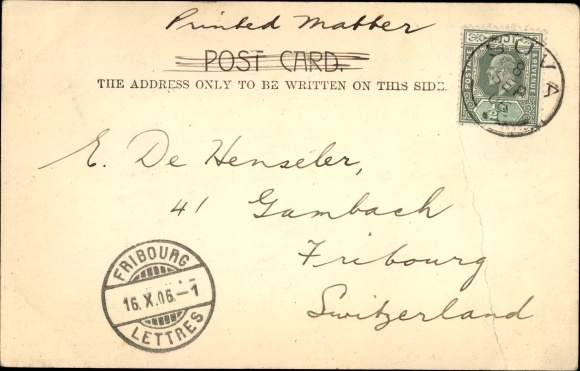 Printed Matter
POST CARD.
THE ADDRESS ONLY TO BE WRITTEN ON THIS SIDE.
POSTAGE & REVENUE
SUVA
E. De Henseler,
41 Gambach
Fribourg
Switzerland
FRIBOURG
16.X.06.–1
LETTRES